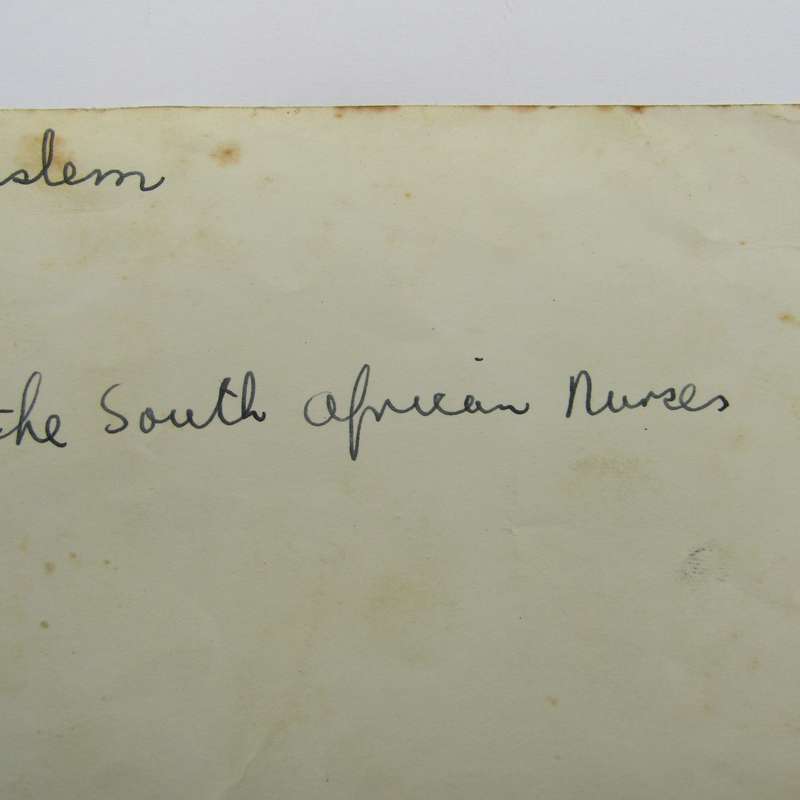 slem
the South African Nurses